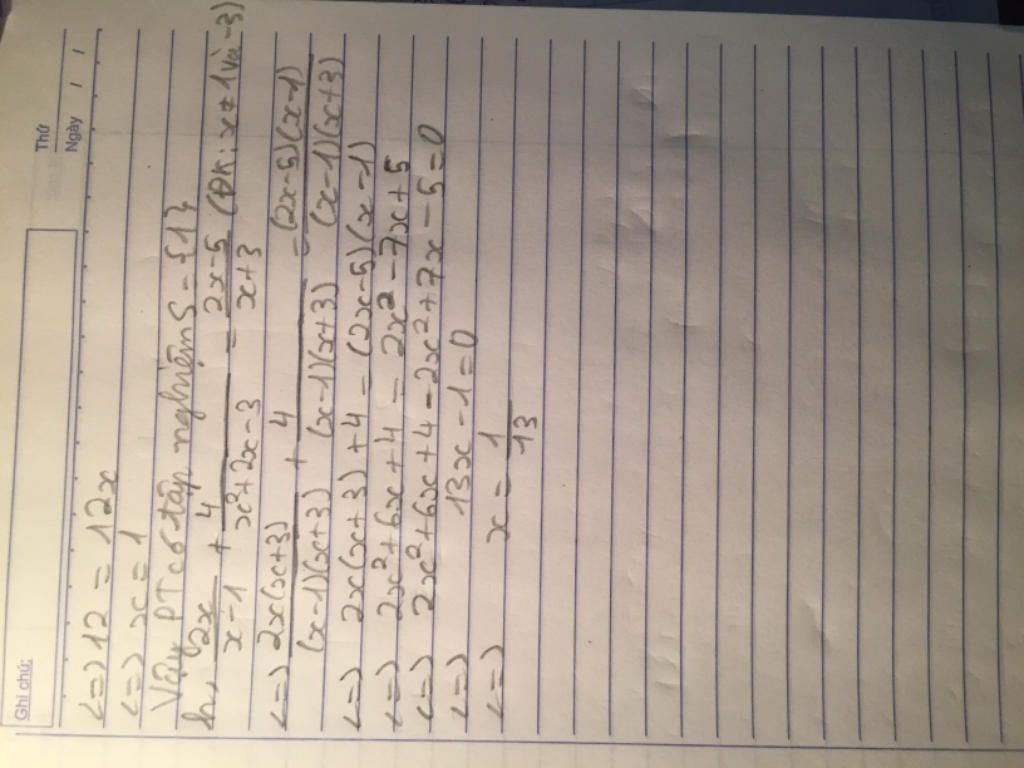 Ghi chú:
Thứ
Ngày / /
<=> 12 = 12x
<=> x = 1
Vậy PT có tập nghiệm S = {1}
h, 2x/x-1 + 4/x²+2x-3 = 2x-5/x+3 (ĐK: x ≠ 1 và -3)
<=> 2x(x+3)/(x-1)(x+3) + 4/(x-1)(x+3) = (2x-5)(x-1)/(x-1)(x+3)
<=> 2x(x+3)+4 = (2x-5)(x-1)
<=> 2x²+6x+4 = 2x²-7x+5
<=> 2x²+6x+4-2x²+7x-5=0
<=> 13x-1=0
<=> x = 1/13